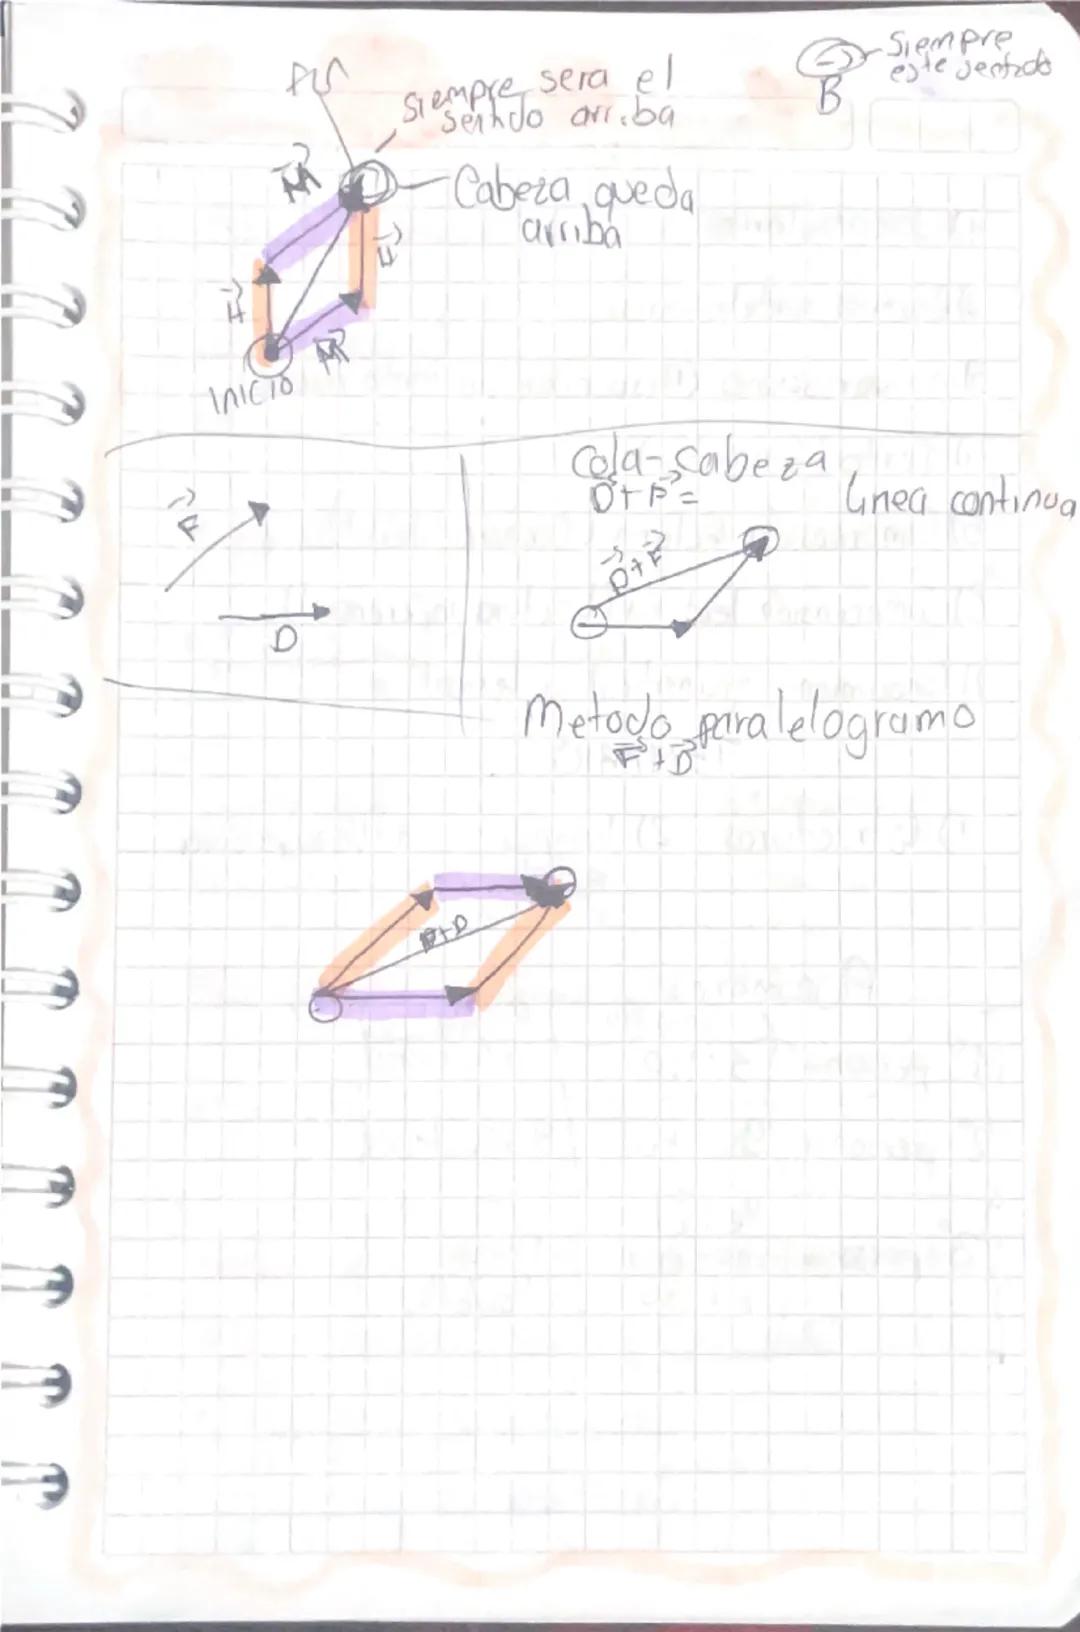 Siempre
este sentido
B
Fin
Siempre sera el
sentido arriba
M
Cabeza queda
arriba
H
H
M
INICIO
Cola-Cabeza
D+F=
línea continua
F
D+F
D
Metodo paralelogramo
F+D
F+D